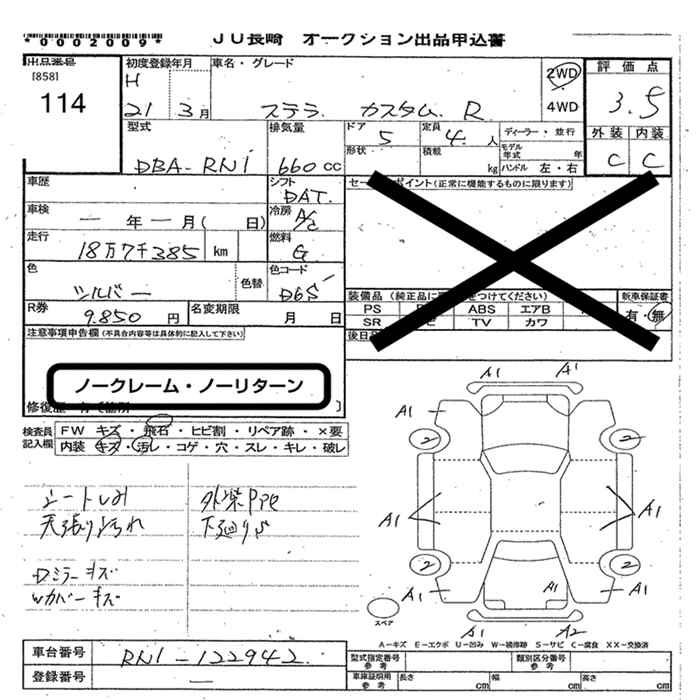 *0002009*
JU長崎 オークション出品申込書
出品番号
[858]
114
初度登録年月
H
21 3月
車名・グレード
ステラ カスタム R
2WD
4WD
評価点
3.5
外装 内装
C C
型式
DBA-RN1
排気量
660cc
ドア
5
定員
4 人
形状
積載
kg
ディーラー・並行
モデル年式 年
ハンドル 左・右
車歴
シフト
DAT
セールスポイント(正常に機能するものに限ります)
車検
— 年 — 月( 日)
冷房
A/C
走行
18万7千385 km
燃料
G
色
シルバー
色替
色コード
D6S
R券
9.850 円
名変期限
月 日
装備品
PS ABS エアB
SR TV カワ
新車保証書
有・無
注意事項申告欄(不具合内容等は具体的に記入して下さい)
ノークレーム・ノーリターン
検査員記入欄
FW キズ・飛石・ヒビ割・リペア跡・×要
内装 キズ・汚レ・コゲ・穴・スレ・キレ・破レ
シートしみ
天張り汚れ
Dミラーキズ
Wカバーキズ
外装
下廻りS
A1 A1
A1 A1
2 2
A1 A1
2 2
A1 A1 A1
A1 A2
スペア
A-キズ E-エクボ U-凹み W-補修跡 S-サビ C-腐食 XX-交換済
車台番号
RN1-122942
登録番号
—
型式指定番号
参考
類別区分番号
参考
車庫証明用
参考
長さ cm
幅 cm
高さ cm